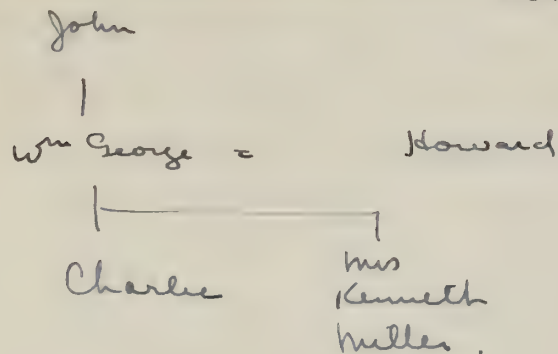 John
Wm George = Howard
Charlie
Mrs
Kenneth
Miller.